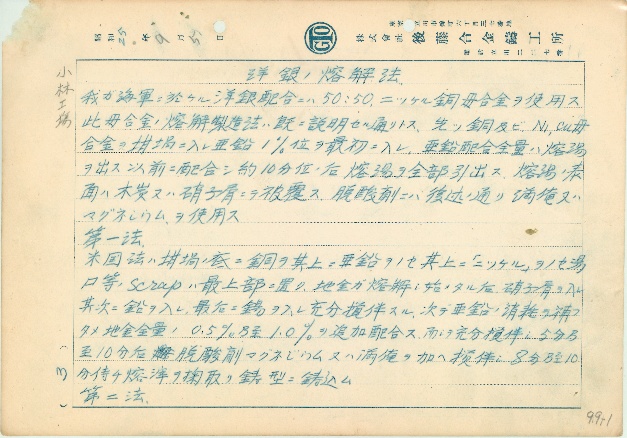 昭和25年9月5日
GTO
株式會社 後藤合金鑄工所
小林工場
洋銀ノ熔解法.
我ガ海軍ニ於ケル洋銀配合ニハ50:50.ニッケル銅母合金ヲ使用ス
此母合金ノ熔解製造法ハ既ニ説明セル通リトス. 先ヅ銅及ビNi, Cu母
合金ヲ坩堝ニ入レ亜鉛1%位ヲ最初ニ入レ. 亜鉛配合全量ハ熔湯
ヲ出ス以前ニ配合シ約10分位ノ后熔湯ヲ全部引出ス. 熔湯ノ表
面ハ木炭又ハ硝子屑ニテ被覆ス. 脱酸剤ニハ後述ノ通リ満俺又ハ
マグネシウムヲ使用ス
第一法.
米国法ハ坩堝ノ底ニ銅ヲ其上ニ亜鉛ヲノセ其上ニ「ニッケル」ヲノセ湯
口等ノscrapハ最上部ニ置ク. 地金ガ熔解シ始メタル后硝子屑ヲ入レ
其次ニ鉛ヲ入レ. 最后ニ錫ヲ入レ充分攪伴スル. 次デ亜鉛ノ消耗ヲ補フ
タメ地金全量ノ0.5%乃至1.0%ヲ追加配合ス. 而シテ充分攪伴シ5分乃
至10分后脱酸剤マグネシウム又ハ満俺ヲ加ヘ攪伴シ8分乃至10
分待チ熔滓ヲ掬取リ鋳型ニ鋳込ム
第二法.
(3)
99-1